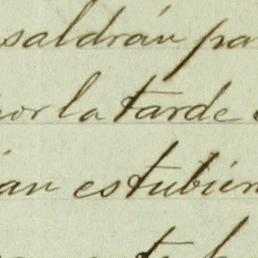 saldrán pa
por la tarde
an estubier